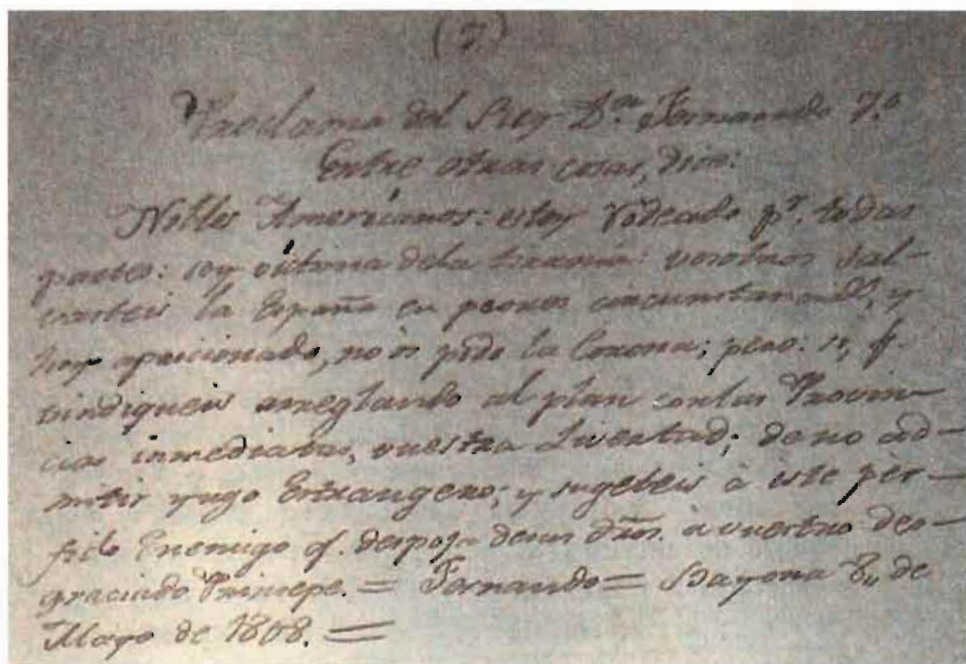 (7)
Proclama del Rey Dn. Fernando 7.º
Entre otras cosas, dice:
Nobles Americanos: estoy rodeado pr. todas
partes: soy victima dela tirania: vosotros sal-
vasteis la España en peores circunstancias, y
hoy apricionado, no os pido la Corona; pero: si, q.
vindiqueis arreglando el plan conlas Provin-
cias inmediatas, vuestra Livertad; de no ad-
mitir yugo Extrangero; y sugeteis à este per-
fido Enemigo q. despoja desus dros. à vuestro des-
graciado Principe. = Fernando = Bayona 8,, de
Mayo de 1808. =